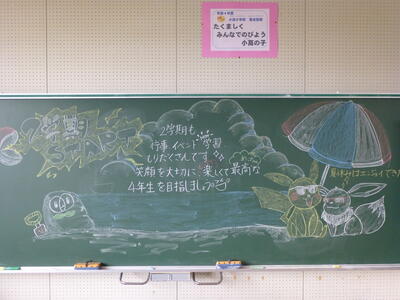 たくましく
みんなでのびよう
小高の子
2学期も
行事 イベント 学習
もりだくさんです
笑顔を大切に、楽しくて最高な
4年生を目指しましょう
夏休みはエンジョイできた